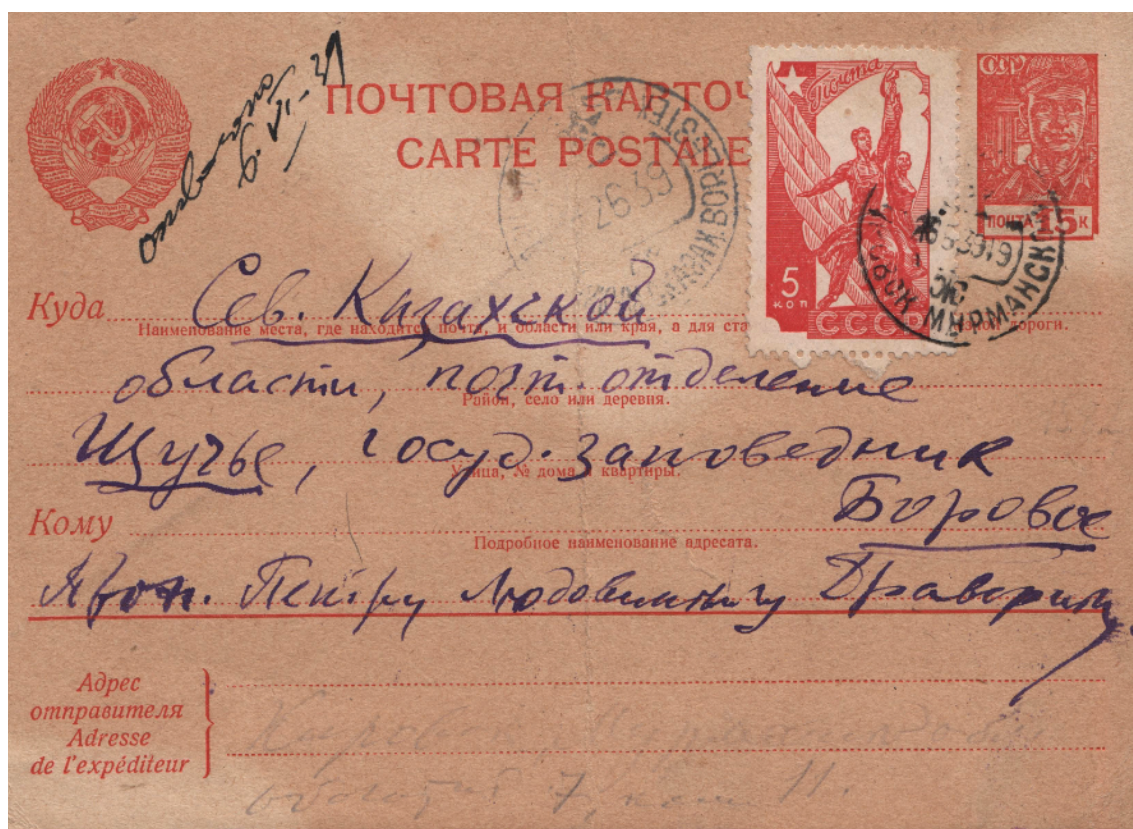 отвечено
6.VI-39
ПОЧТОВАЯ КАРТОЧ
CARTE POSTALE
Почта
5
КОП
СССР
СССР
ПОЧТА 15 К
Куда Сев. Казахской
Наименование места, где находится почта, и области или края, а для ста дороги.
области, почт. отделение
Район, село или деревня.
Щучье, госуд. заповедник
Улица, № дома и квартиры.
Боровое
Кому
Подробное наименование адресата.
Петру Людовиковичу
Адрес
отправителя
Adresse
de l'expéditeur
7, 11.